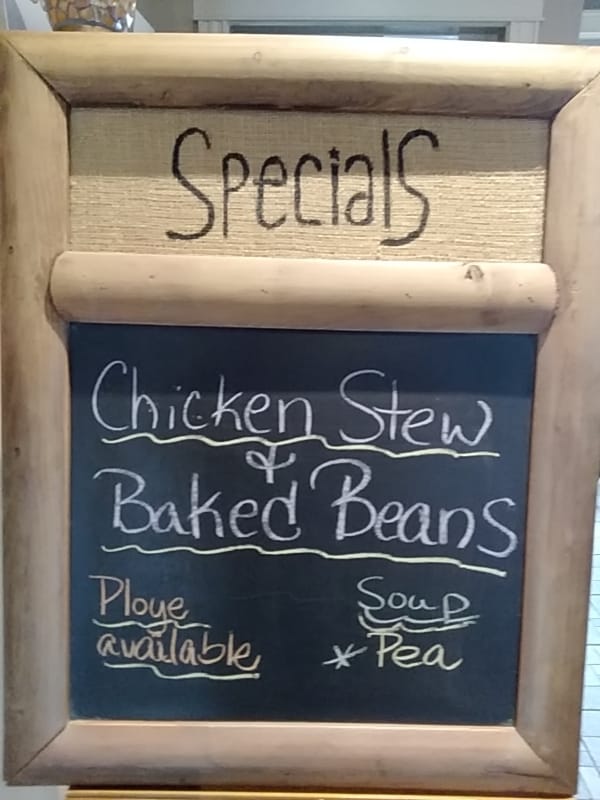 Specials
Chicken Stew
&
Baked Beans
Ploye
available
Soup
* Pea